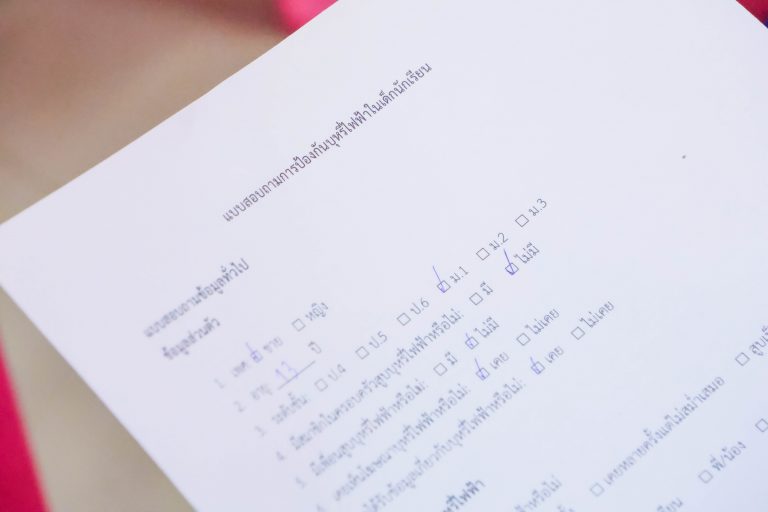 แบบสอบถามการป้องกันบุหรี่ไฟฟ้าในเด็กนักเรียน
แบบสอบถามข้อมูลทั่วไป
ข้อมูลส่วนตัว
1. เพศ ☑ ชาย ☐ หญิง
2. อายุ 13 ปี
3. ระดับชั้น: ☐ ป.4 ☐ ป.5 ☐ ป.6 ☑ ม.1 ☐ ม.2 ☐ ม.3
4. มีสมาชิกในครอบครัวสูบบุหรี่ไฟฟ้าหรือไม่: ☐ มี ☑ ไม่มี
5. มีเพื่อนสูบบุหรี่ไฟฟ้าหรือไม่: ☐ มี ☑ ไม่มี
6. เคยเห็นโฆษณาบุหรี่ไฟฟ้าหรือไม่: ☑ เคย ☐ ไม่เคย
ได้รับข้อมูลเกี่ยวกับบุหรี่ไฟฟ้าหรือไม่: ☑ เคย ☐ ไม่เคย
หรี่ไฟฟ้า
หรือไม่ ☐ เคยหลายครั้งแต่ไม่สม่ำเสมอ ☐ สูบเป็
☐ พี่/น้อง ☐